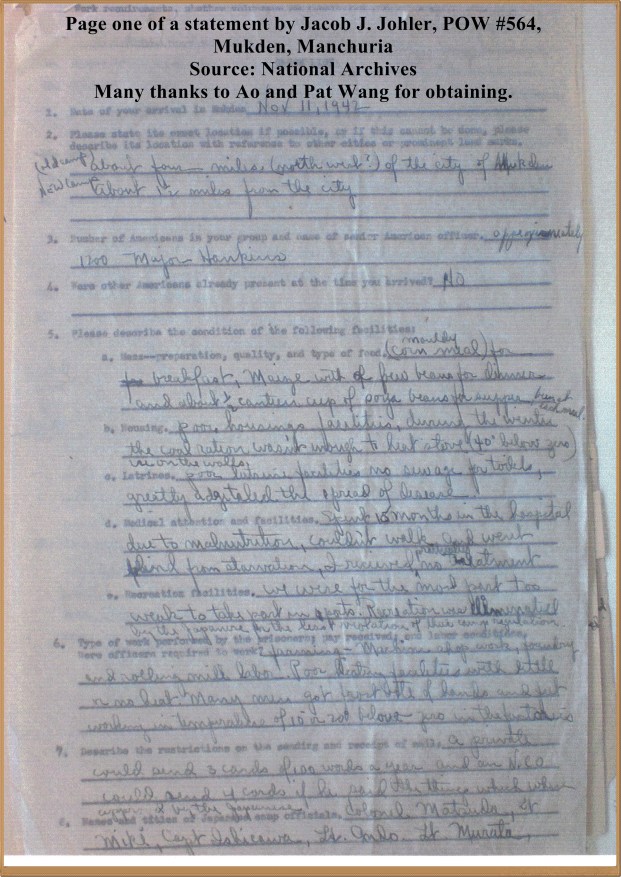 Page one of a statement by Jacob J. Johler, POW #564,
Mukden, Manchuria
Source: National Archives
Many thanks to Ao and Pat Wang for obtaining.
1. Date of your arrival in Mukden Nov 11, 1942
2. Please state its exact location if possible, or if this cannot be done, please
describe its location with reference to other cities or prominent land marks.
(old camp) about four miles (north west) of the city of Mukden
New Camp about 1½ miles from the city
3. Number of Americans in your group and name of senior American officer. approximately
1200 Major Hankins
4. Were other Americans already present at the time you arrived? No
5. Please describe the condition of the following facilities:
a. Mess--preparation, quality, and type of food. mouldy (corn meal) for
breakfast, Maize with few beans for dinner
and about ½ canteen cup of soya beans for supper
b. Housing. poor housing facilities, during the winter
the coal ration wasn't enough to heat stove (40° below zero)
ice on the walls.
c. Latrines. poor latrine facilities no sewage for toilets,
greatly the spread of disease
d. Medical attention and facilities. Spent 15 months in the hospital
due to malnutrition, couldn't walk and went
blind from starvation, I received practically no treatment
e. Recreation facilities. we were for the most part too
weak to take part in sports. Recreation was
by the Japanese for the least violation of their camp regulation.
6. Type of work performed by the prisoners; pay received; and labor conditions.
Were officers required to work? Machine shop work, foundry
and rolling mill labor. Poor heating facilities with little
or no heat Many men got frost bite of hands and feet
working in temperatures of 10 or 20° below zero in the
7. Describe the restrictions on the sending and receipt of mail. a private
could send 3 cards of 100 words a year and an N.C.O.
could send 4 cards if he said the things which
by the Japanese.
8. Names and titles of Japanese camp officials. Colonel Matsuda, Lt
Miki, Capt Ishikawa, Lt. Ando Lt. Murata,